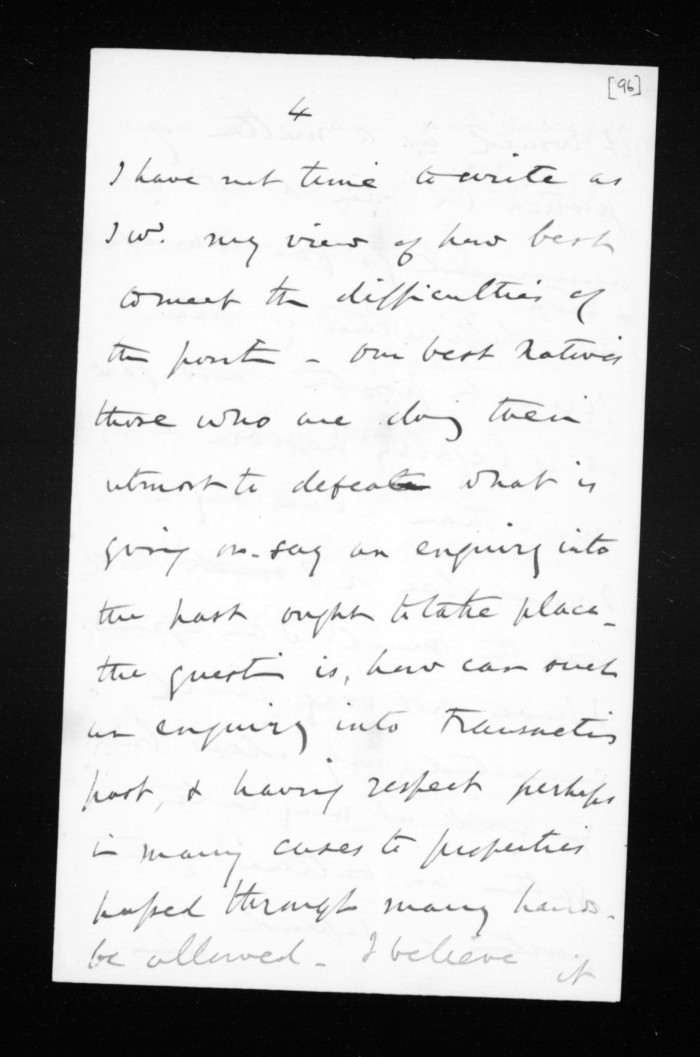 [96]
4
I have not time to write as
I wd. my view of how best
to meet the difficulties of
the point - our best Natives
those who are doing their
utmost to defeat what is
going on - say an enquiry into
the past ought to take place -
the questn is, how can such
an enquiry into transactions
past, & having respect perhaps
in many cases to properties
passed through many hands -
be allowed - I believe it